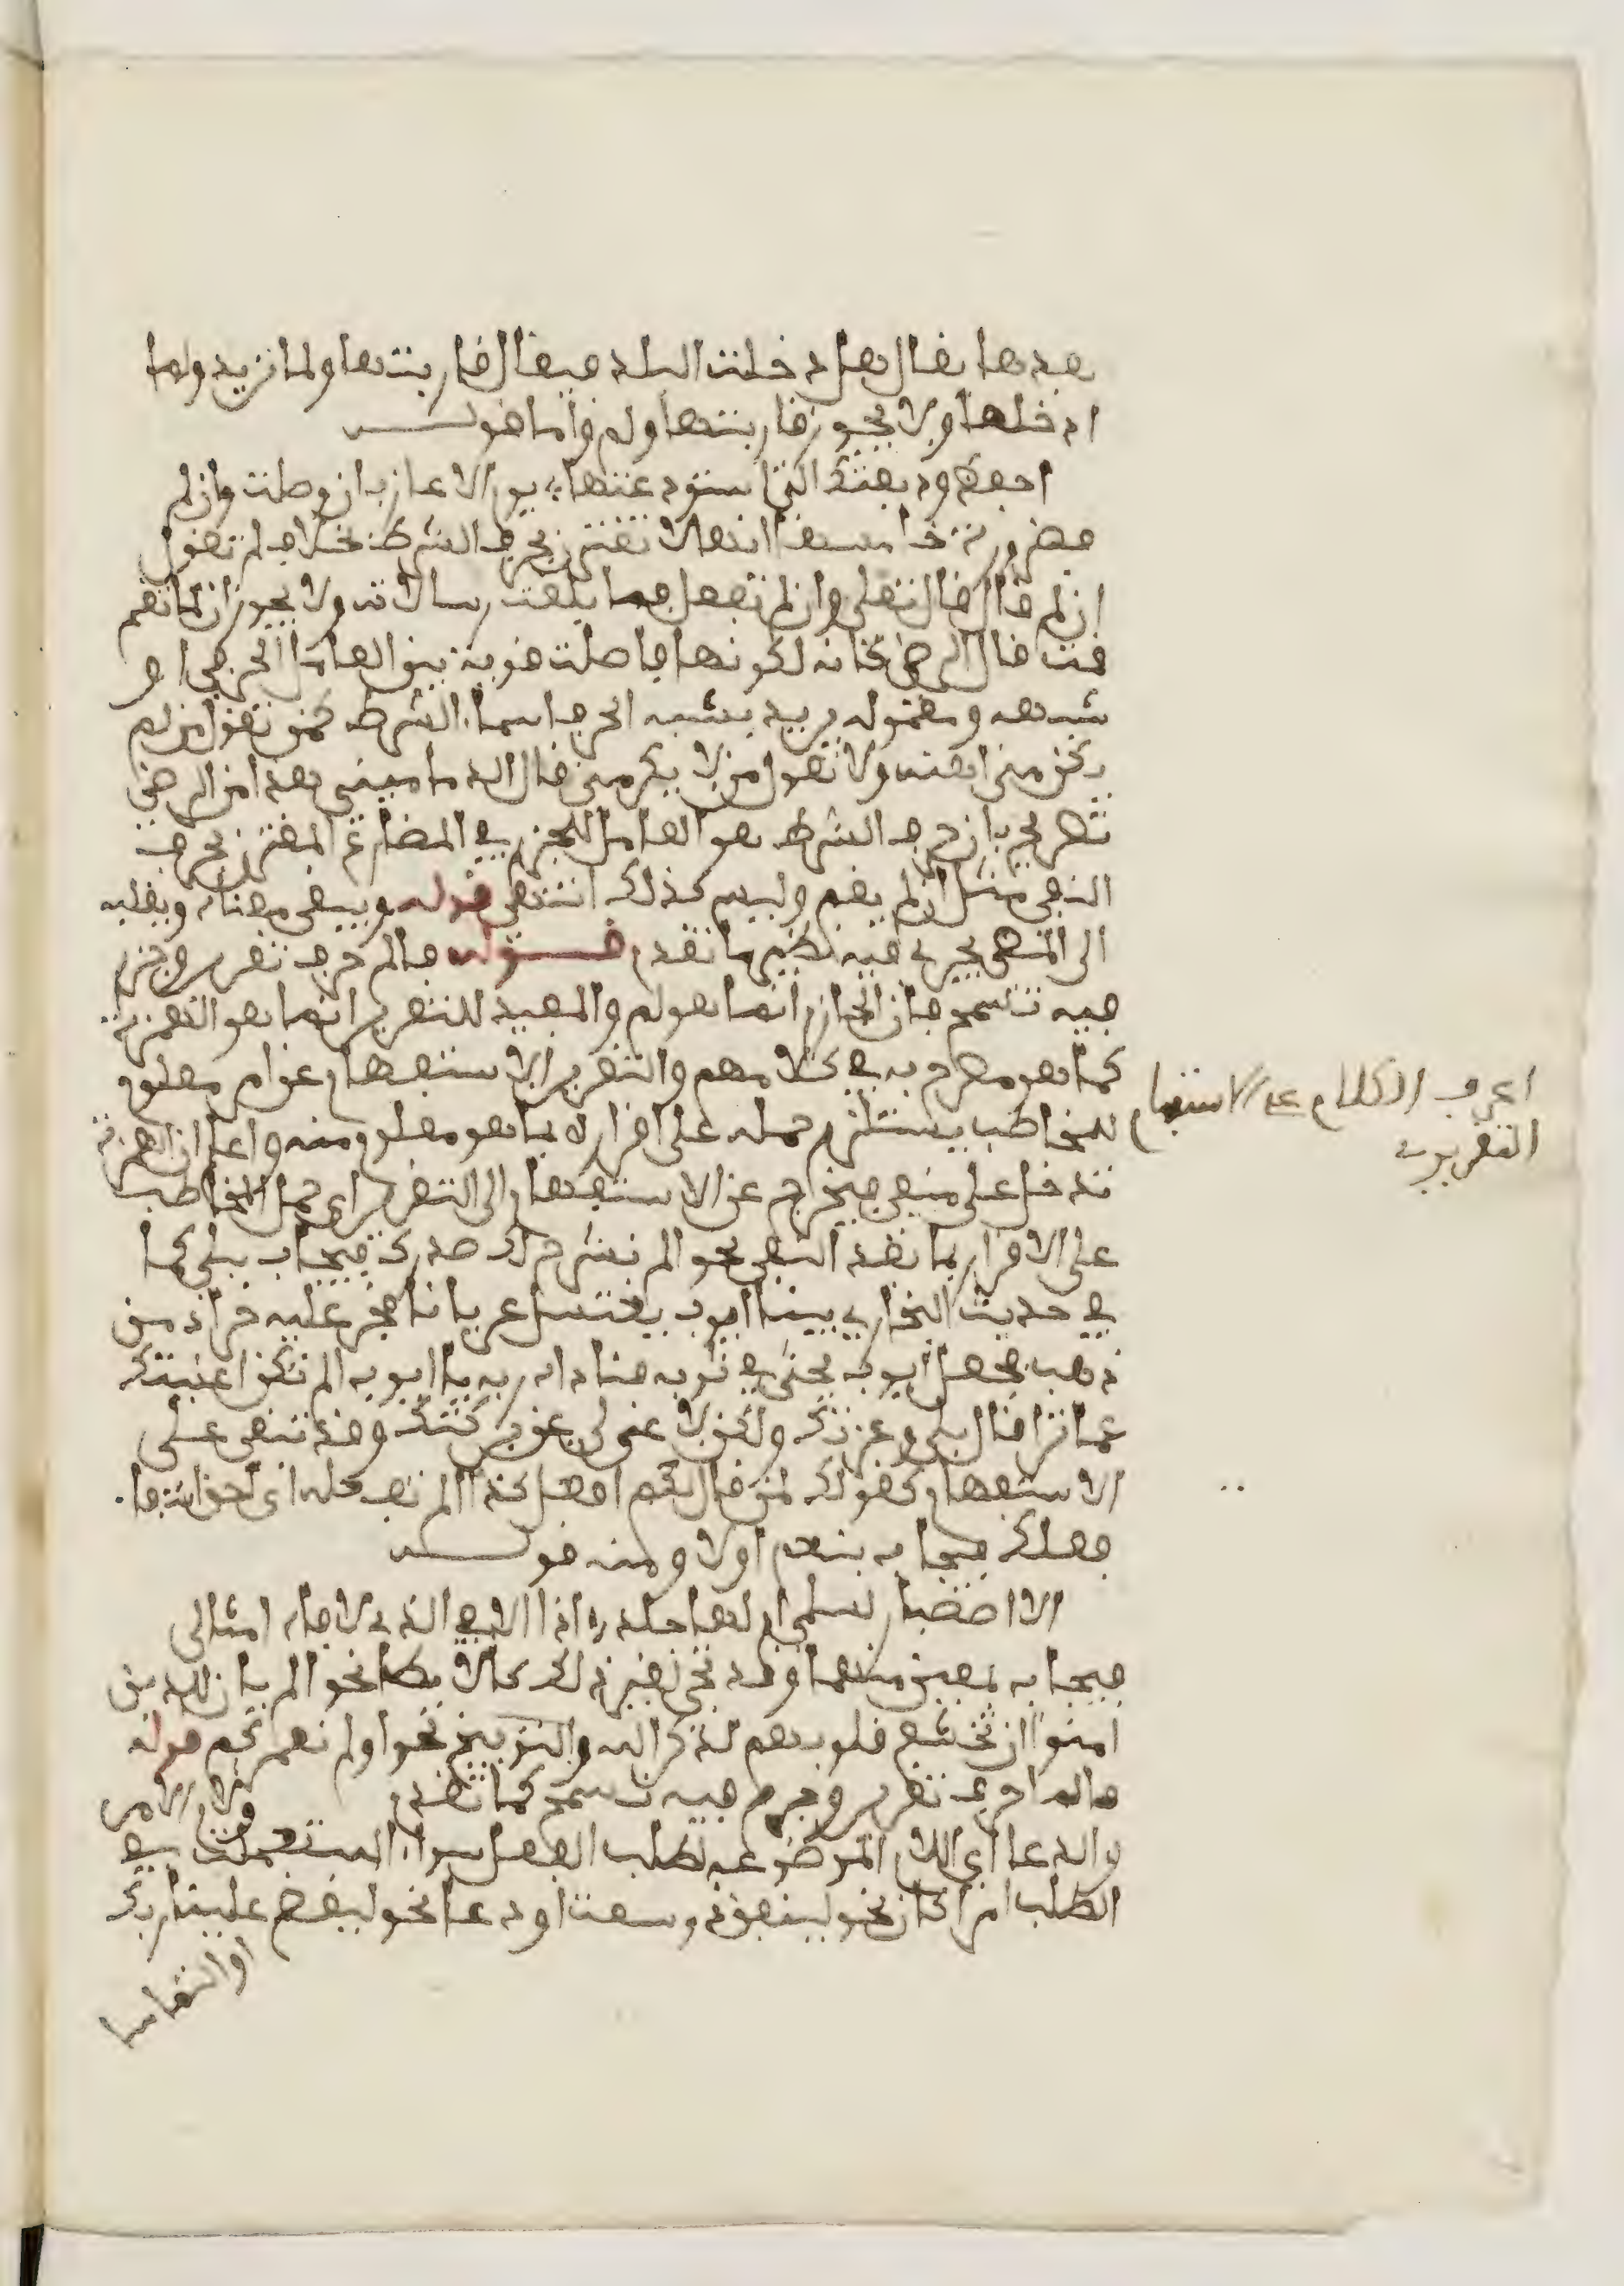 بعدها يقال هل دخلت البلد فيقال قاربتها ولما تريد ولما
ادخلها ولا يجوز قاربتها ولم واما قولــــه
احفظ وديعتك التي استودعتها يوم الاعازب ان وصلت وان لم
فضرورة خامسها انها لا تقترن بحرف الشرط بخلاف لم تقول
ان لم قال تعلى وان لم تفعل فما بلغت رسالاته ولا يجوز ان لما تقم
قمت قال الرضى كانه لكونها فاصلت قوية بين العامل الحرفى او
شبهه ومعموله يريد بشبه الحرف اسماء الشرط كمن تقول من لم
يكرمنى اهنته ولا تقول من لا يكرمنى قال الدمامينى هذا من الرضى
تصريح بان حرف الشرط هو العامل للجزم في المضارع المقترن بحرف
النفى مثل ان لم يقم وليس كذلك انتهى قوله وينفى معناه ويقلبه
الى المضى يجرى فيه نظير ما تقدم قــــوله فالم حرف تقرير وجزم
فيه تسمح فان الجازم انما هو لم والمفيد للتقرير انما هو الهمزة
كما هو مصرح به في كلامهم والتقرير الاستفهام عن امر معلوم
للمخاطب يستلزم حمله على اقراره بما هو معلوم منه واعلم ان الهمزة
تدخل على منفى فيخرج عن الاستفهام الى التقرير اي حمل المخاطب
على الاقرار بما بعد النفى نحو الم نشرح لك صدرك فيجاب ببلى كما
في حديث البخاري بينا ايوب يغتسل عريانا فخر عليه جراد من
ذهب فجعل ايوب يحثى في ثوبه فناداه ربه يا ايوب الم نكن اغنيتك
عما ترى قال بلى وعزتك ولكن لا غنى لى عن بركتك وقد تبقى على
الاستفهام كقولك لمن قال لكم افعل كذا الم تفعله اى احق انتفا
فعلك فيجاب بنعم اولا ومنه قولــــه
الا اصطبار لسلمى ام لها جلد اذا الاقي الذي لاقاه امثالى
فيجاب بمعين منهما وقد تجى لغير ذلك كالابطا نحو الم يان للذين
امنوا ان تخشع قلوبهم لذكر الله والتوبيخ نحو اولم نعمركم قوله
فالما حرف تقرير وجزم فيه تسمح كما تقدم ولام الامر
والدعا اي اللام الموضوعة لطلب الفعل سواء استعملت في
الطلب امرا كان نحو لينفق ذو سعة او دعا نحو ليقض علينا ربك
او التماسا
اعرف الكلام على الاستفهام
التقريري